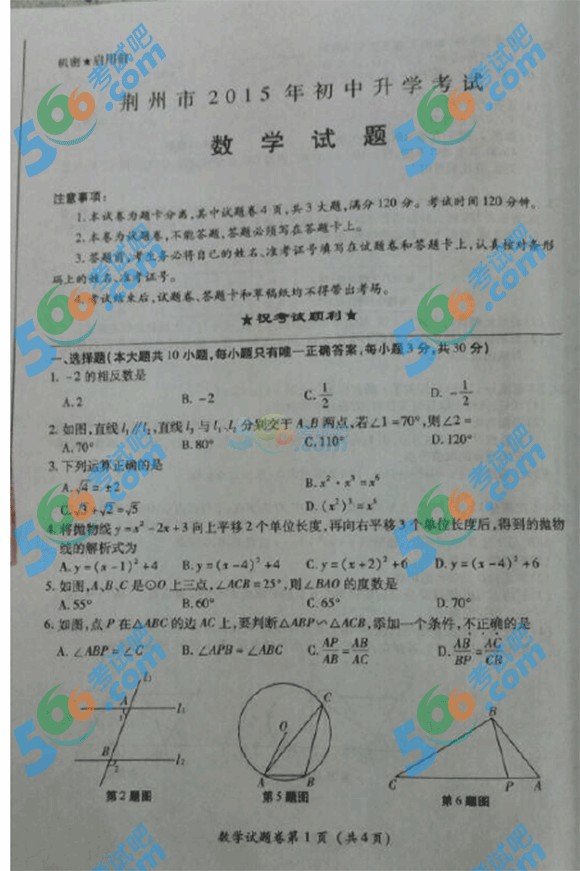 机密★启用前
荆州市2015年初中升学考试
数学试题
注意事项:
1.本试卷为题卡分离,其中试题卷4页,共3大题,满分120分。考试时间120分钟。
2.本卷为试题卷,不能答题,答题必须写在答题卡上。
3.答题前,考生务必将自己的姓名、准考证号填写在试题卷和答题卡上,认真核对条形
码上的姓名、准考证号。
4.考试结束后,试题卷、答题卡和草稿纸均不得带出考场。
★祝考试顺利★
一、选择题(本大题共10小题,每小题只有唯一正确答案,每小题3分,共30分)
1. -2的相反数是
A.2 B. -2 C. 1/2 D. -1/2
2.如图,直线l₁∥l₂,直线l₃与l₁、l₂分别交于A、B两点,若∠1=70°,则∠2=
A.70° B.80° C.110° D.120°
3.下列运算正确的是
A.√4=±2 B.x²·x³=x⁶
C.√3+√2=√5 D.(x²)³=x⁶
4.将抛物线y=x²-2x+3向上平移2个单位长度,再向右平移3个单位长度后,得到的抛物
线的解析式为
A.y=(x-1)²+4 B.y=(x-4)²+4 C.y=(x+2)²+6 D.y=(x-4)²+6
5.如图,A、B、C是⊙O上三点,∠ACB=25°,则∠BAO的度数是
A.55° B.60° C.65° D.70°
6.如图,点P在△ABC的边AC上,要判断△ABP∽△ACB,添加一个条件,不正确的是
A.∠ABP=∠C B.∠APB=∠ABC C. AP/AB=AB/AC D. AB/BP=AC/CB
l₃
A
1
l₁
B
2
l₂
第2题图
C
O
A B
第5题图
B
C P A
第6题图
数学试题卷第1页(共4页)
566考试吧
.com